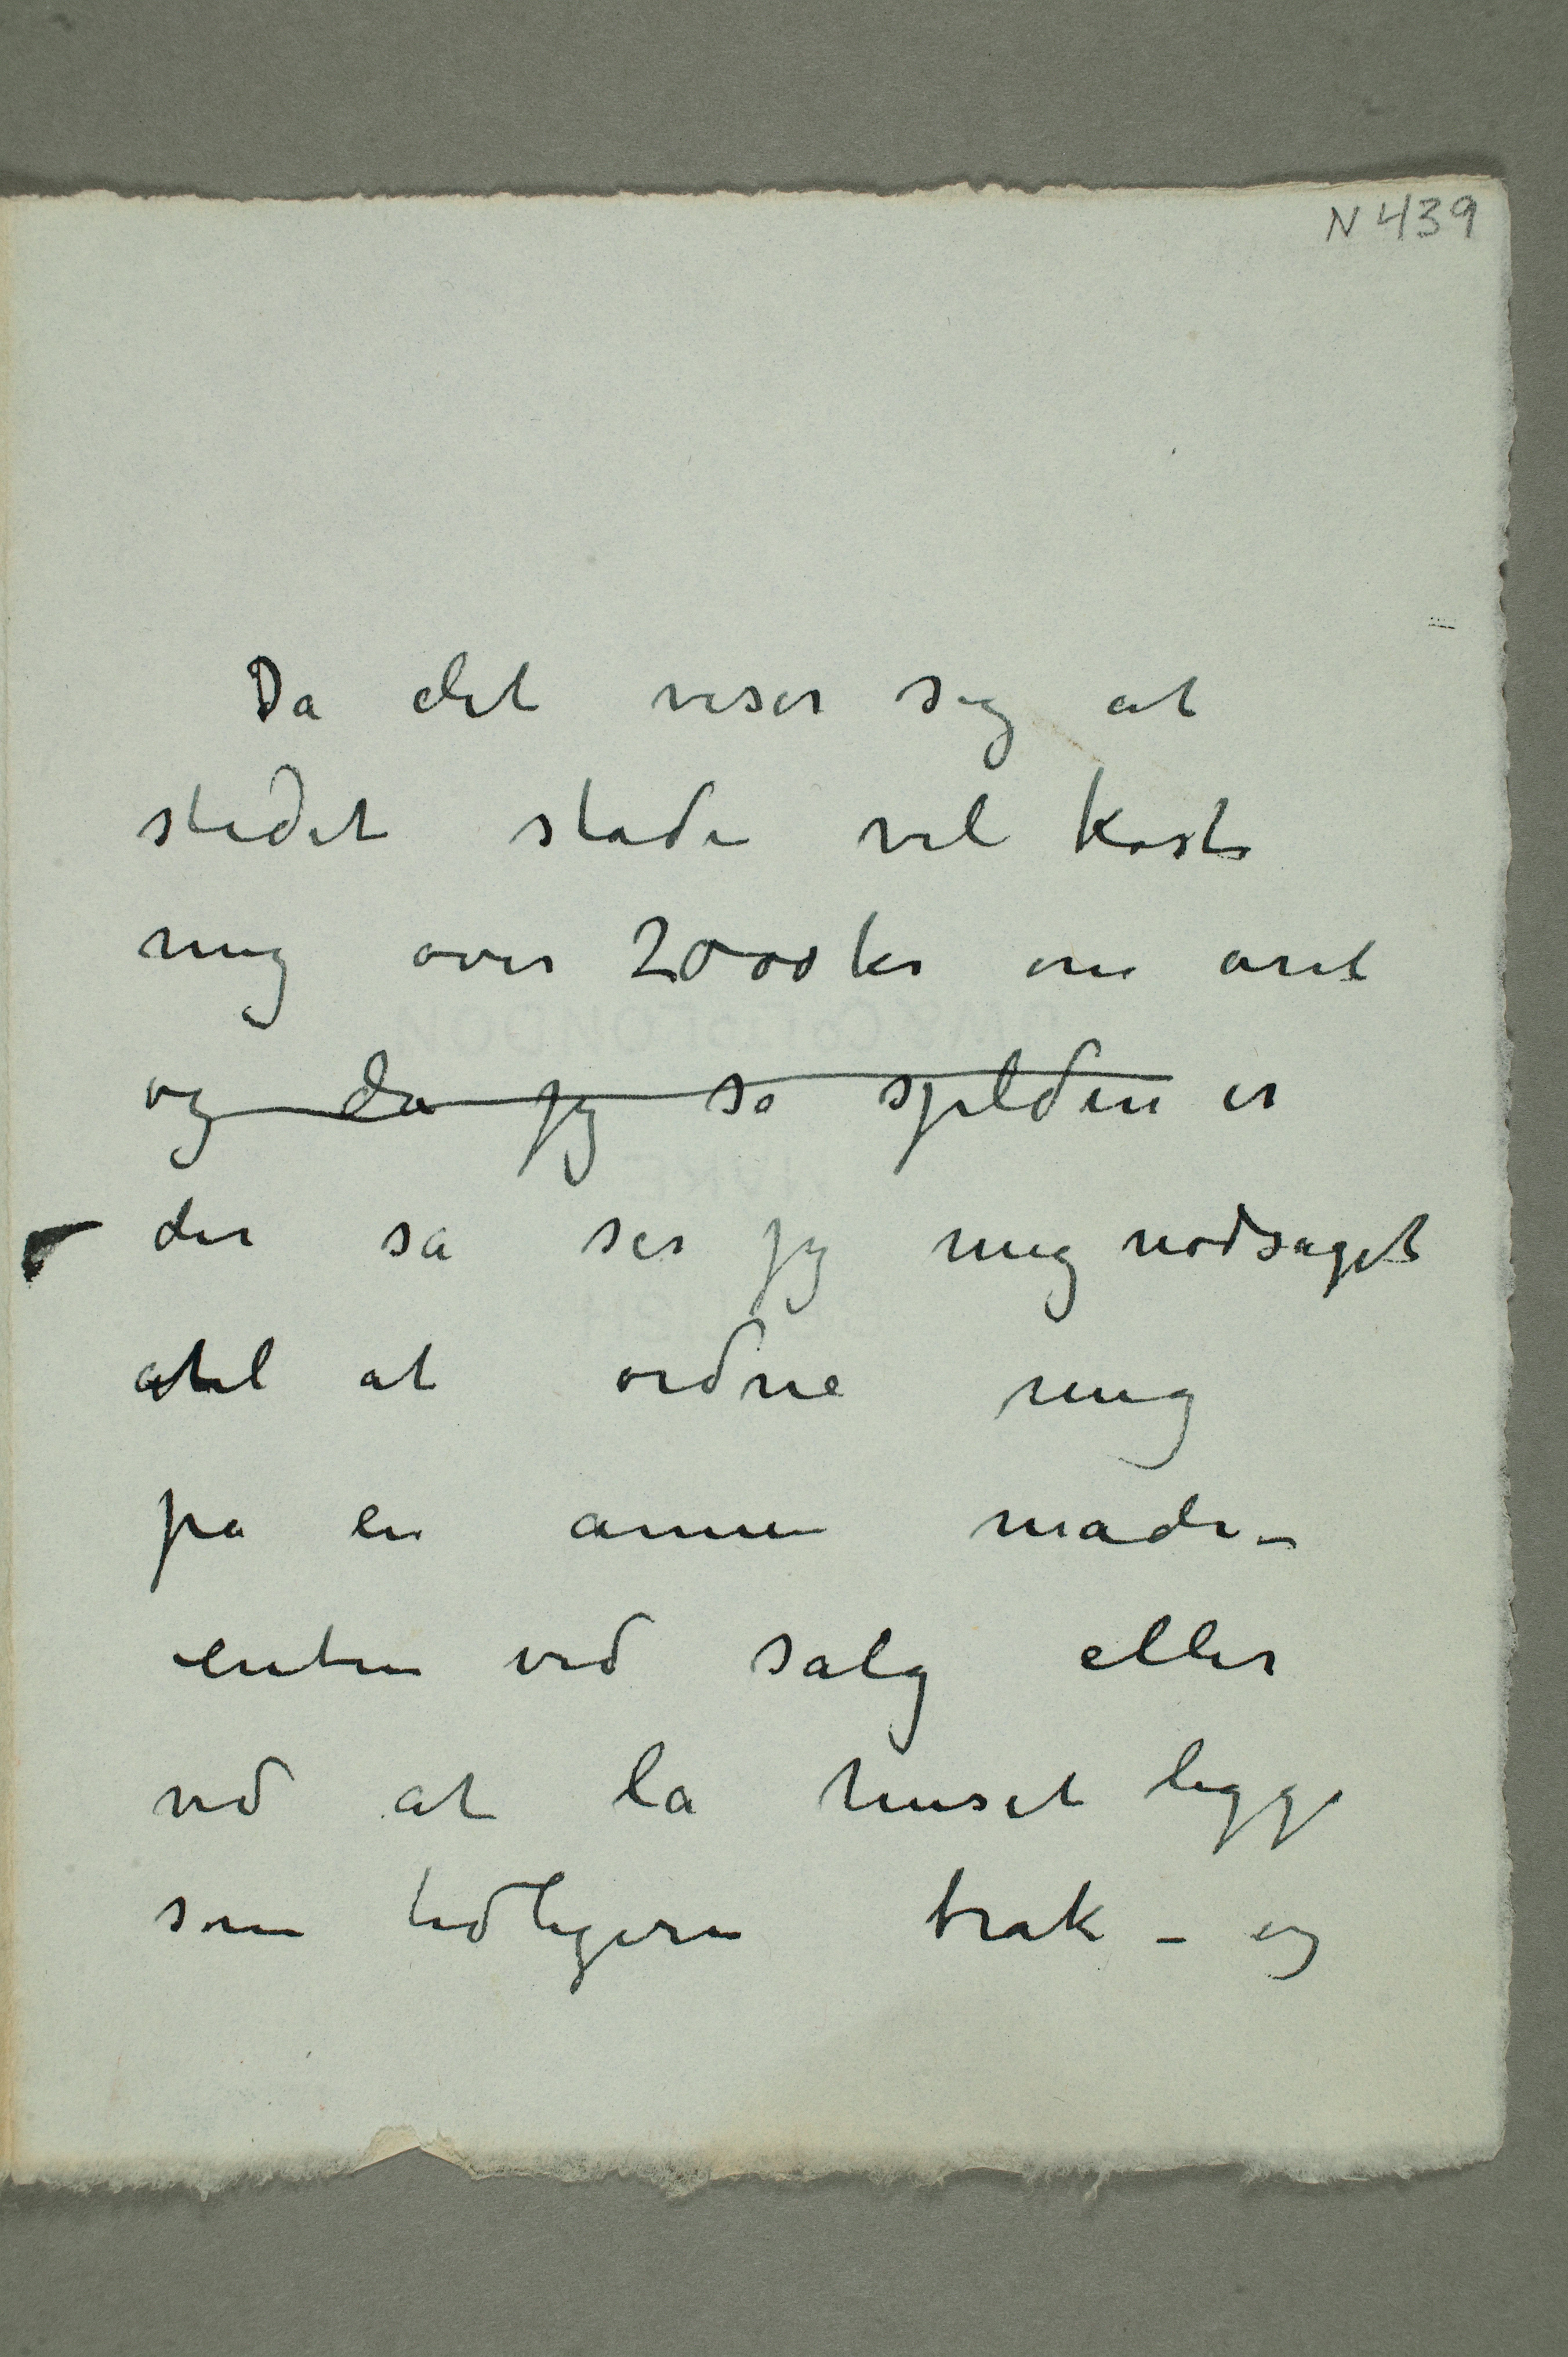 N 439
Da det viser sig at
stedet stadi vil koste
mig over 2000 kr om aret
og da jeg så sjelden er
der så ser jeg mig nødsaget
atil at ordne mig
på en annen måde –
enten ved salg eller
ved at la huset ligge
som tidligere brak – og